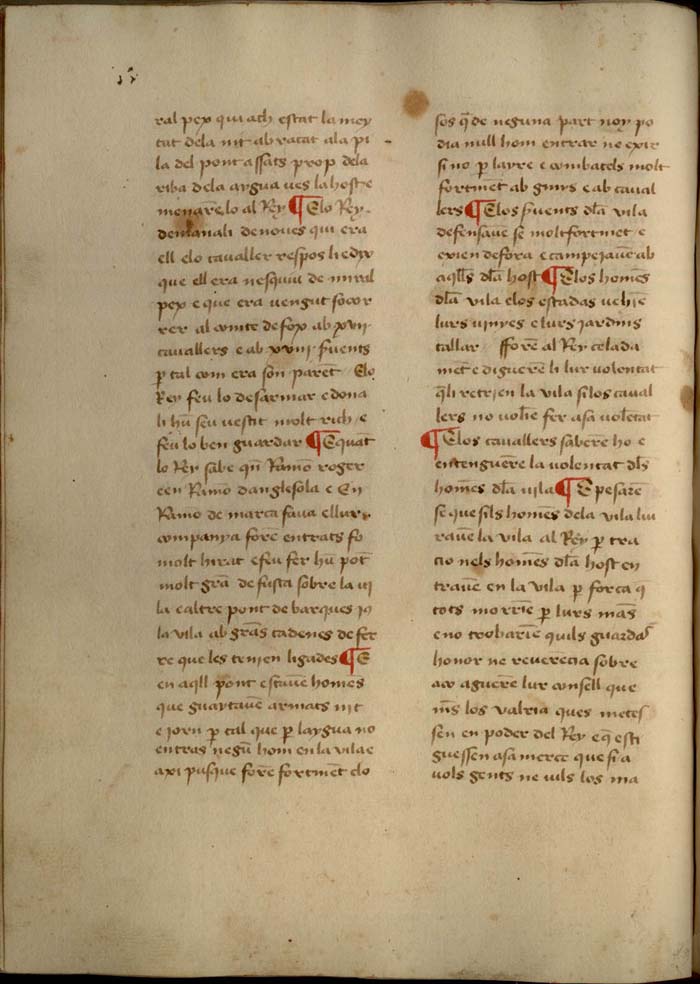 ral pex qui ach estat la mey
tat dela nit abracat ala pi
la del pont assats prop dela
riba dela aygua ves la host e
menarē lo al Rey ¶ E lo Rey
demanali de noves qui era
ell e lo cavaller respos li e dix
que ell era nesquiu de miral
pex e que era vengut socor
rer al comte de fox ab xvii
cavallers e ab xviii ſvents
ꝑ tal com era son parēt E lo
Rey feu lo desarmar e dona
li hū seu vestit molt rich e
feu lo ben guardar ¶ E quāt
lo Rey sabe qn̄ Ramō roger
e en Ramō danglesola e En
Ramō de marca fava e llur
companya forē entrats fo
molt hirat e feu fer hū pōt
molt grā de fusta sobre la vi
la e altre pont de barques ius
la vila ab grās cadenes de fer
re que les tenien ligades ¶ E
en aq̄ll pont estavē homēs
que guaytavē armats nit
e iorn ꝑ tal que ꝑ laygua no
entras negū hom en la vila e
axi pusque forē fortmēt clo
sos q̄ de neguna part noy po
dia null hom entrar ne exir
si no ꝑ layre e combatels molt
fortmēt ab ginys e ab caval
lers ¶ E los ſvents dl̄a vila
defensavē se molt fortmēt e
exien defora e campejavē ab
aq̄lls dl̄a host ¶ E los homēs
dl̄a vila e los estadas vehiē
lurs vinyes e lurs jardins
tallar fforē al Rey celada
mēt e diguerē li lur volentat
q̄ li retrien la vila si los caval
lers no voliē fer a sa volētat
¶ E los cavallers saberē ho e
entenguerē la volentat dl̄s
homēs dl̄a vila ¶ E pesarē
se que si ls homēs dela vila liu
ravē la vila al Rey ꝑ tra
cio nels homēs dl̄a host en
travē en la vila ꝑ forca q̄
tots morriē ꝑ lurs mās
e no trobariē quils guardas
honor ne reverēcia sobre
aco aguerē lur consell que
mēs los valria ques metes
sen en poder del Rey e q̄ esti
guessen a sa merce que si a
vols gents ne vils los ma